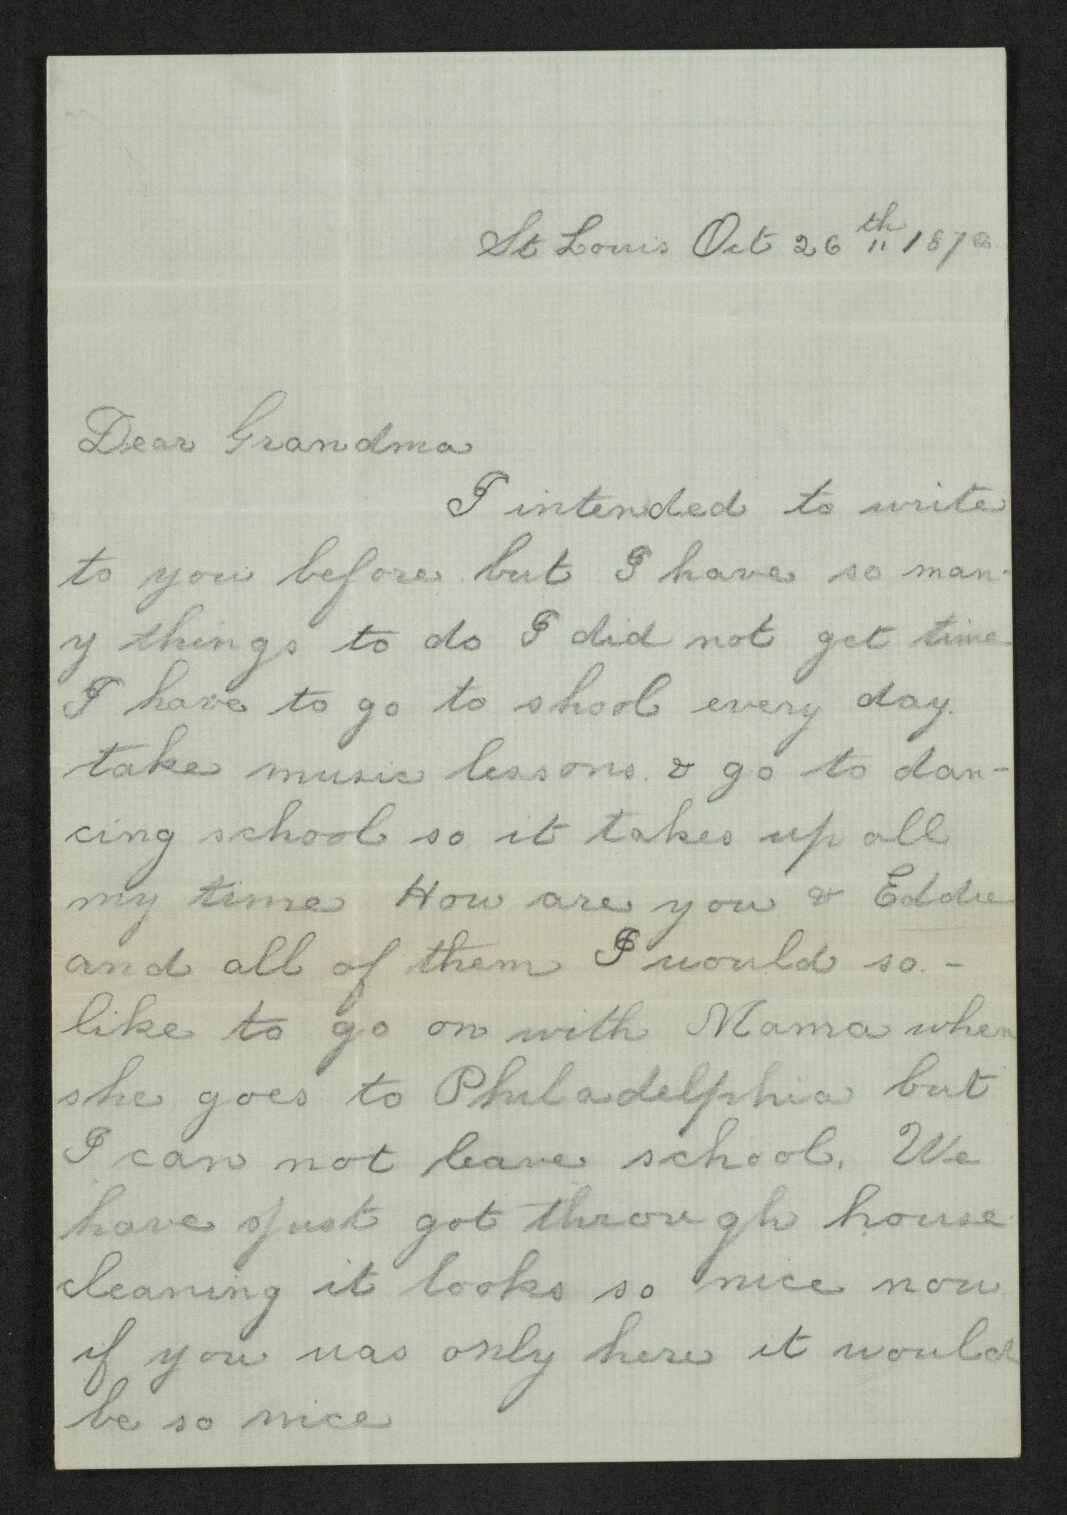 St Louis Oct 26th 1872
Dear Grandma
I intended to write
to you before but I have so man-
y things to do I did not get time
I have to go to shool every day.
take music lessons. & go to dan-
cing school so it takes up all
my time How are you & Eddie
and all of them I would so -
like to go on with Mama when
she goes to Philadelphia but
I can not leave school. We
have just got through house
cleaning it looks so nice now
if you was only here it would
be so nice